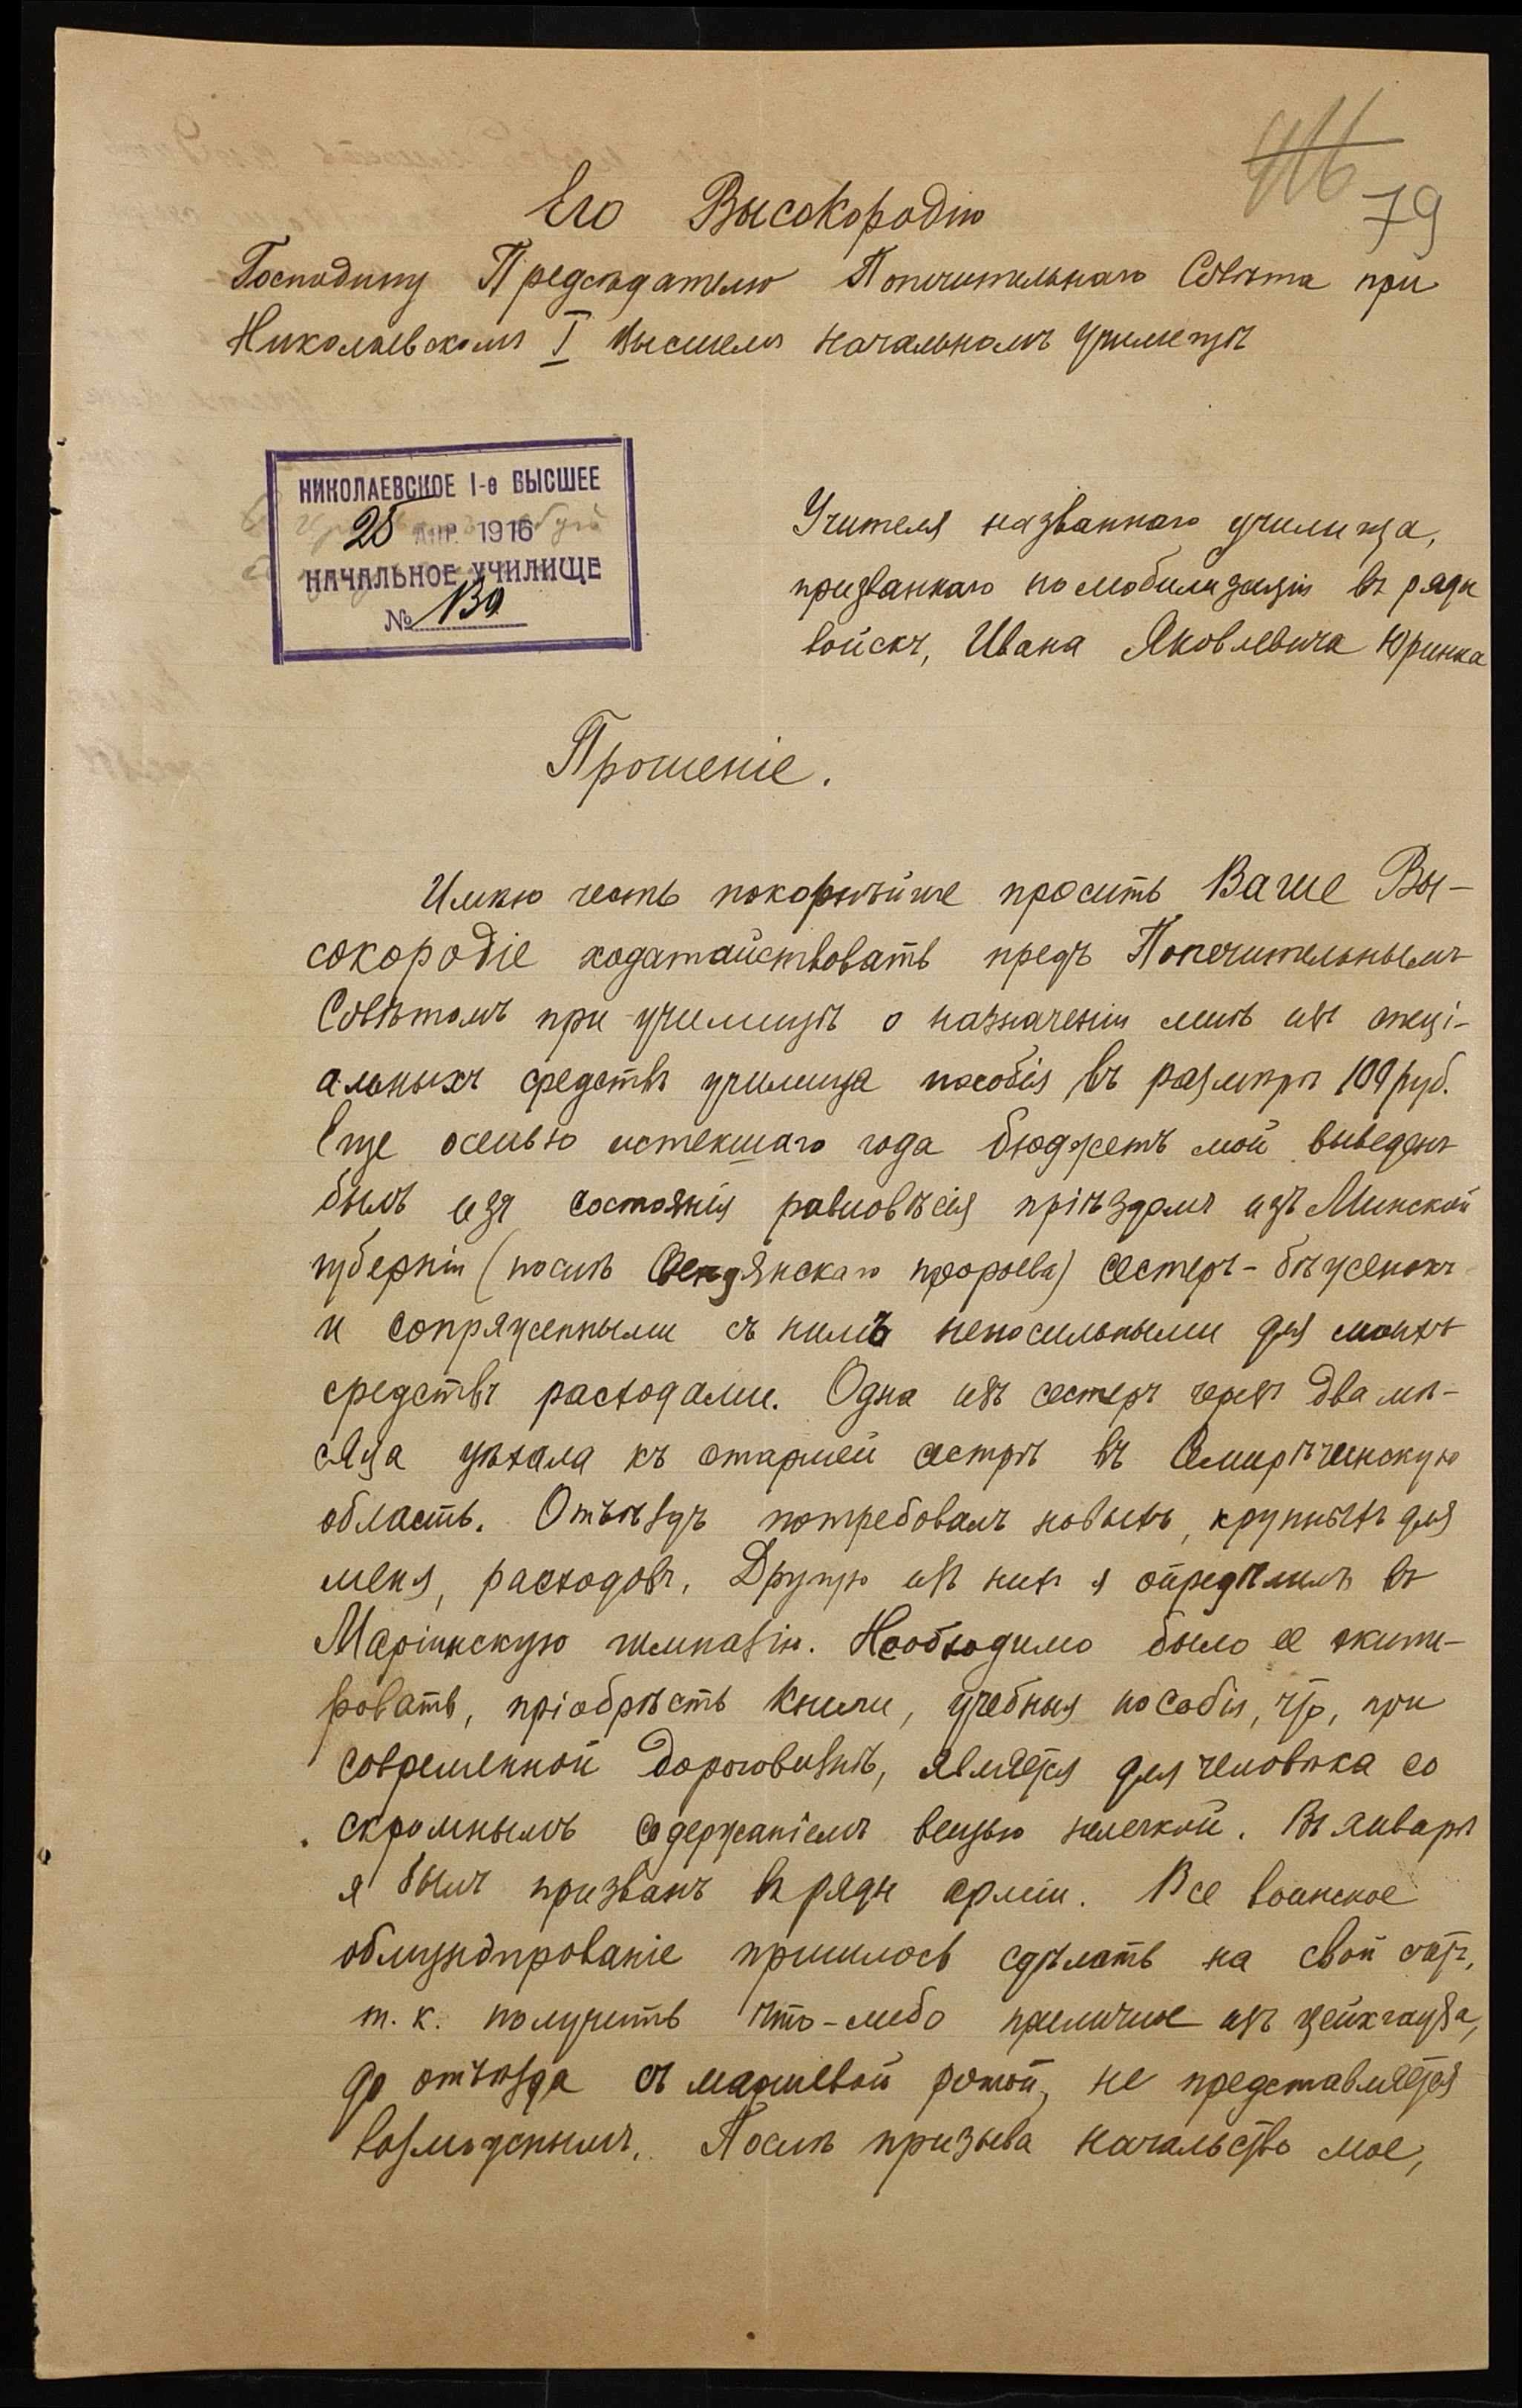 79
Его Высокородію
Господину Предсѣдателю Попечительнаго Совѣта при
Николаевскомъ I Высшемъ Начальномъ Училищѣ
НИКОЛАЕВСКОЕ I-е ВЫСШЕЕ
28 АПР. 1916
НАЧАЛЬНОЕ УЧИЛИЩЕ
№ 139
Учителя названнаго училища,
призваннаго по мобилизаціи въ ряды
войскъ, Ивана Яковлевича Юринка
Прошеніе.
Имѣю честь покорнѣйше просить Ваше Вы-
сокородіе ходатайствовать предъ Попечительнымъ
Совѣтомъ при училищѣ о назначеніи мнѣ изъ спеці-
альныхъ средствъ училища пособія въ размѣрѣ 100 руб.
Еще осенью истекшаго года бюджетъ мой выведенъ
былъ изъ состоянія равновѣсія пріѣздомъ изъ Минской
губерніи (послѣ Свендянскаго прорыва) сестеръ-бѣженокъ
и сопряженными съ нимъ непосильными для моихъ
средствъ расходами. Одна изъ сестеръ черезъ два мѣ-
сяца уѣхала къ старшей сестрѣ въ Семирѣченскую
область. Отъѣздъ потребовалъ новыхъ, крупныхъ для
меня, расходовъ. Другую изъ нихъ я опредѣлилъ въ
Маріинскую гимназію. Необходимо было ее экипи-
ровать, пріобрѣсть книги, учебныя пособія, что, при
современной дороговизнѣ, является для человѣка со
скромнымъ содержаніемъ вещью нелегкой. Въ январѣ
я былъ призванъ въ ряды арміи. Все воинское
обмундированіе пришлось сдѣлать на свой счетъ,
т. к. получить что-либо приличное изъ цейхгауза,
до отъѣзда съ маршевой ротой, не представляется
возможнымъ. Послѣ призыва начальство мое,